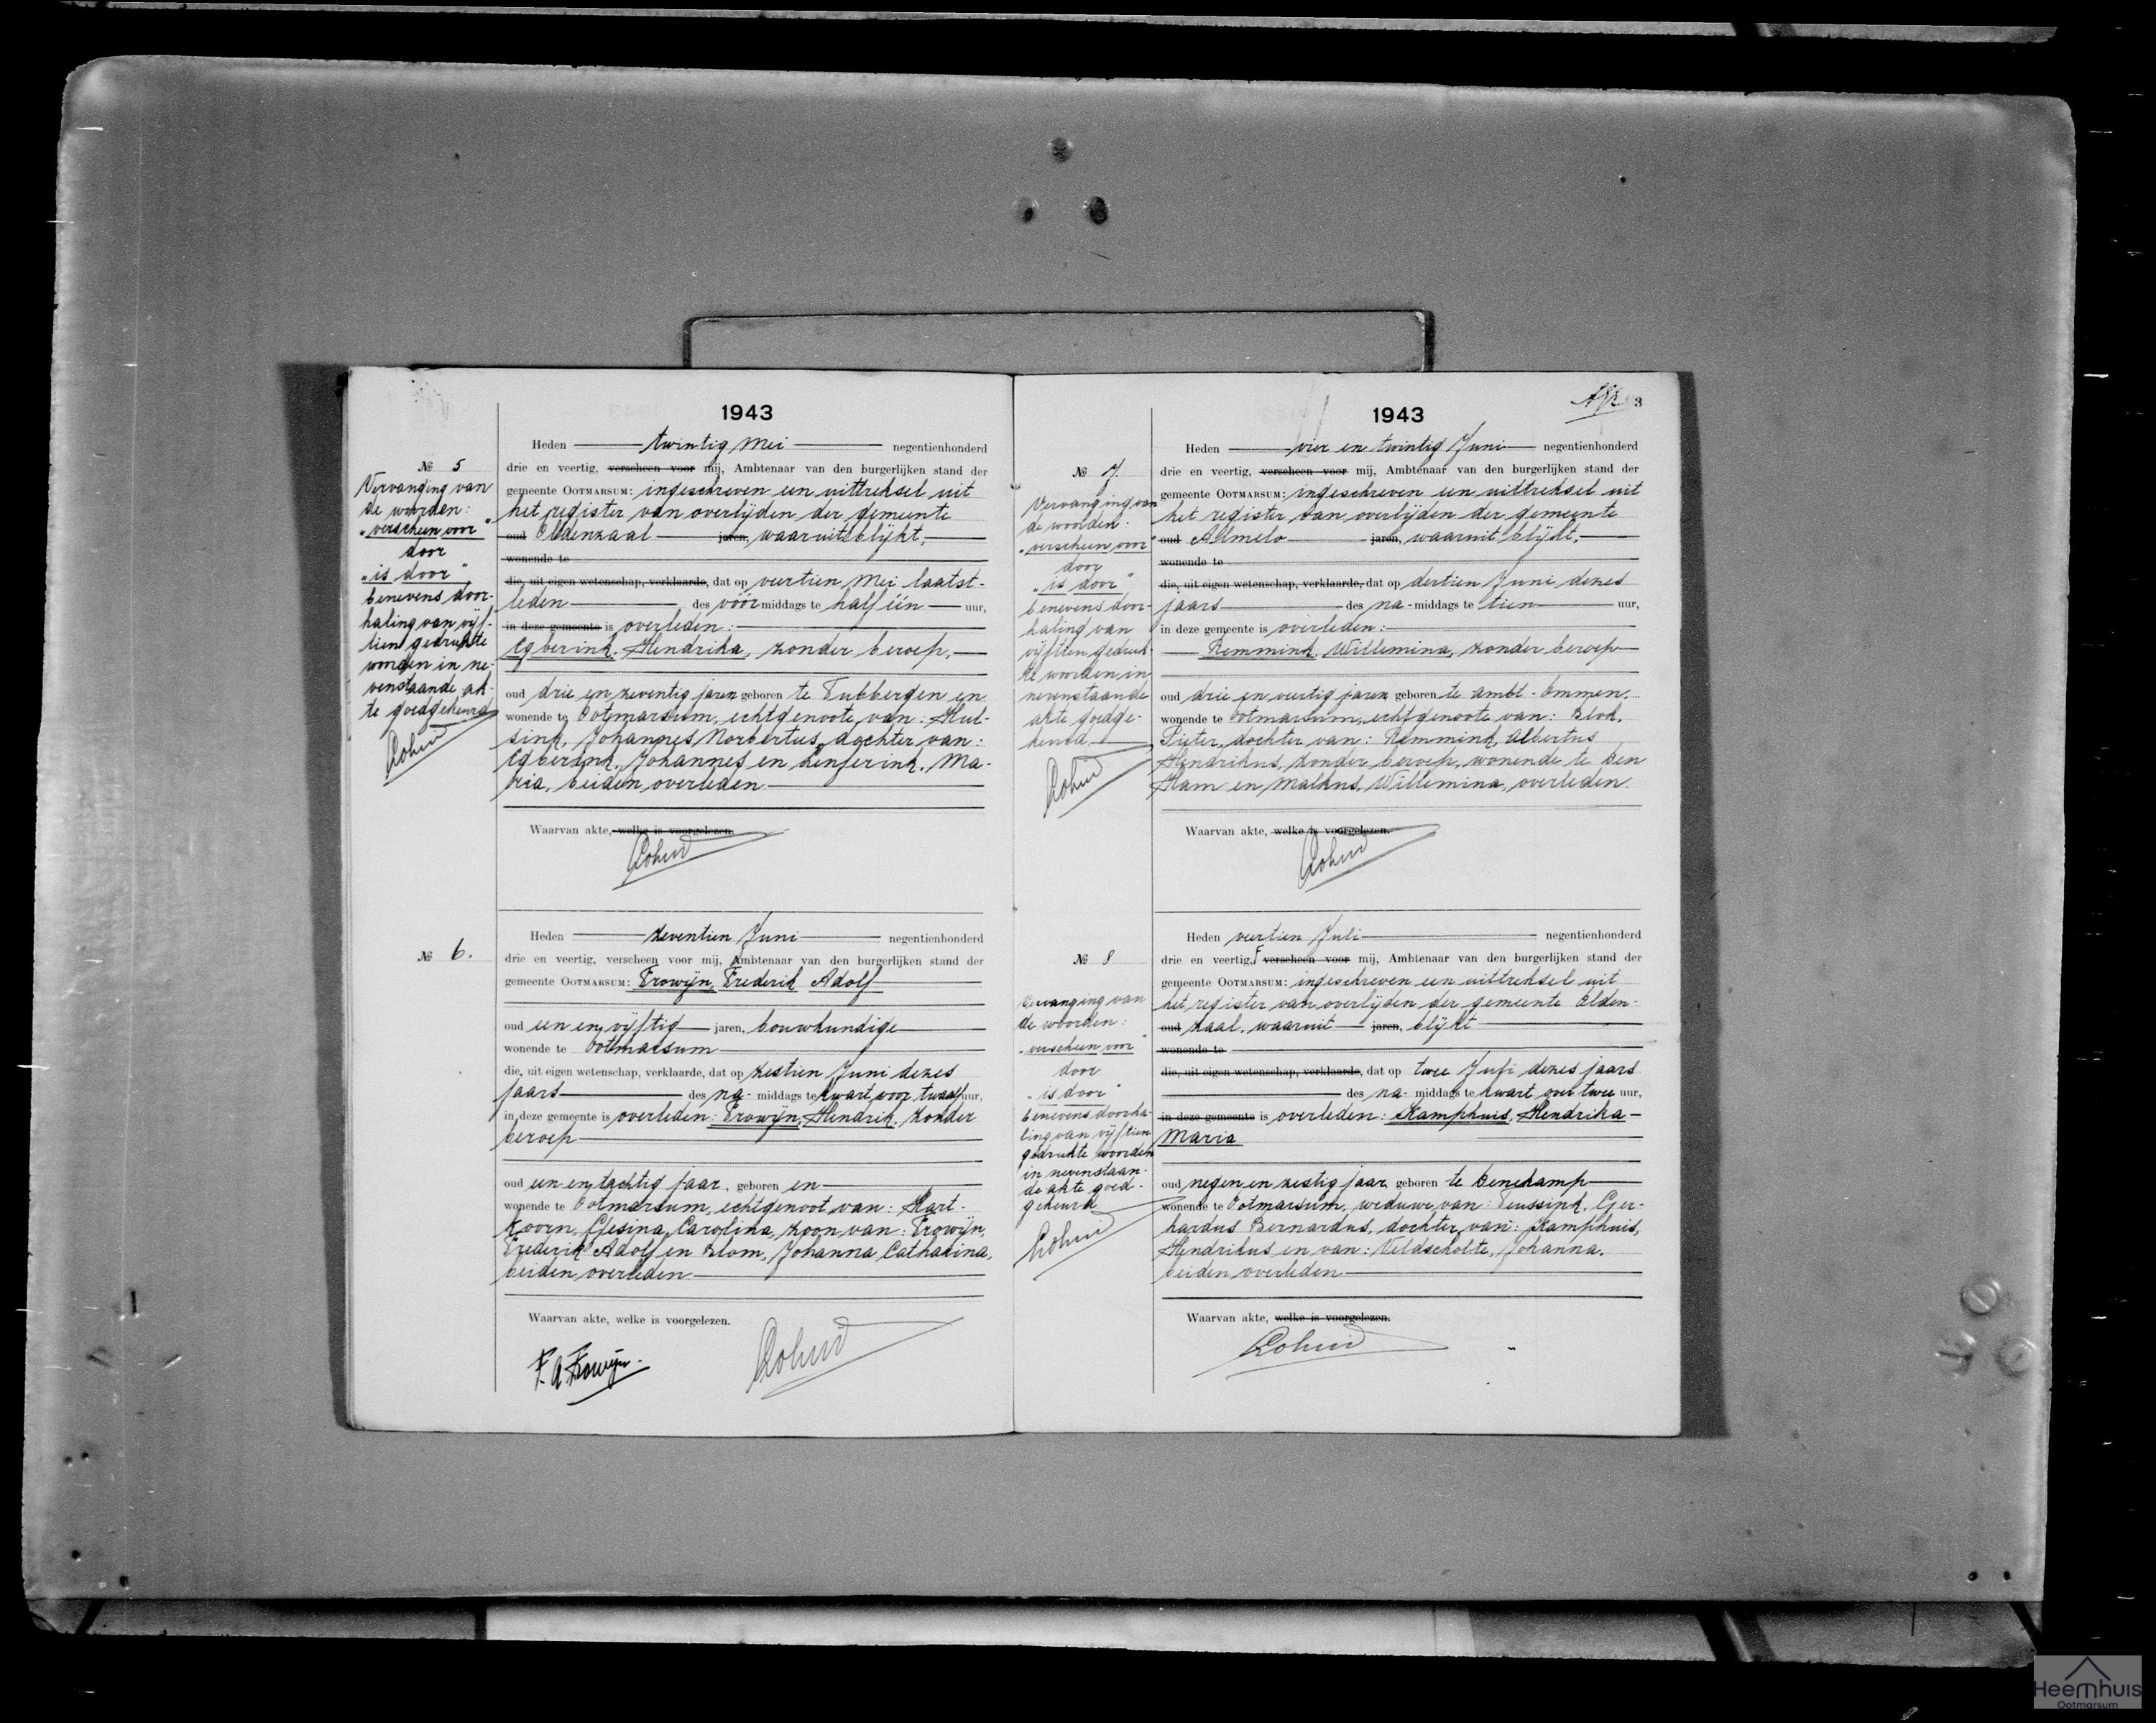 1943
Heden twintig Mei negentienhonderd
№ 5
drie en veertig, verscheen voor mij, Ambtenaar van den burgerlijken stand der
gemeente OOTMARSUM: ingeschreven een uittreksel uit
het register van overlijden der gemeente
oud Oldenzaal jaren, waaruit blijkt,
wonende te
die, uit eigen wetenschap, verklaarde, dat op veertien Mei laatst-
leden des vóór middags te half één uur,
in deze gemeente is overleden:
Egberink, Hendrika, zonder beroep,
oud drie en zeventig jaren geboren te Tubbergen en
wonende te Ootmarsum, echtgenoote van: Hul-
sink, Johannes Norbertus, dochter van:
Egberink, Johannes en Lenferink, Ma-
ria, beiden overleden
Waarvan akte, welke is voorgelezen.
Vervanging van
de woorden:
"verscheen voor"
door
"is door"
benevens door-
haling van vijf-
tien gedrukte
woorden in ne-
venstaande ak-
te goedgekeurd
№ 6.
Heden zeventien Juni negentienhonderd
drie en veertig, verscheen voor mij, Ambtenaar van den burgerlijken stand der
gemeente OOTMARSUM: Frowijn, Frederik Adolf
oud een en vijftig jaren, bouwkundige
wonende te Ootmarsum
die, uit eigen wetenschap, verklaarde, dat op zestien Juni dezes
jaars des na- middags te kwart voor twaalf uur,
in deze gemeente is overleden: Frowijn, Hendrik, zonder
beroep
oud een en tachtig jaar, geboren en
wonende te Ootmarsum, echtgenoot van: Hart-
koorn, Gesina Carolina, zoon van: Frowijn,
Frederik Adolf en Blom, Johanna Catharina,
beiden overleden
Waarvan akte, welke is voorgelezen.
F. A. Frowijn.
1943
3
Heden vier en twintig Juni negentienhonderd
№ 7.
drie en veertig, verscheen voor mij, Ambtenaar van den burgerlijken stand der
gemeente OOTMARSUM: ingeschreven een uittreksel uit
het register van overlijden der gemeente
oud Almelo jaren, waaruit blijkt,
wonende te
die, uit eigen wetenschap, verklaarde, dat op dertien Juni dezes
jaars des na-middags te tien uur,
in deze gemeente is overleden:
Remmink, Willemina, zonder beroep
oud drie en veertig jaren geboren te Ambt-Ommen,
wonende te Ootmarsum, echtgenoote van: Blok,
Pieter, dochter van: Remmink, Albertus
Hendrikus, zonder beroep, wonende te Den
Ham en Malkus, Willemina, overleden.
Waarvan akte, welke is voorgelezen.
Vervanging van
de woorden:
"verscheen voor"
door
"is door"
benevens door-
haling van
vijftien gedruk-
te woorden in
nevenstaande
akte goedge-
keurd
Heden veertien Juli negentienhonderd
№ 8
drie en veertig, verscheen voor mij, Ambtenaar van den burgerlijken stand der
gemeente OOTMARSUM: ingeschreven een uittreksel uit
het register van overlijden der gemeente Olden-
oud zaal, waaruit jaren, blijkt
wonende te
die, uit eigen wetenschap, verklaarde, dat op twee Juli dezes jaars
des na- middags te kwart over twee uur,
in deze gemeente is overleden: Kamphuis, Hendrika
Maria
oud negen en zestig jaar geboren te Denekamp
wonende te Ootmarsum, weduwe van: Teussink, Ger-
hardus Bernardus, dochter van: Kamphuis,
Hendrikus en van: Veldscholte, Johanna,
beiden overleden
Waarvan akte, welke is voorgelezen.
Vervanging van
de woorden:
"verscheen voor"
door
"is door"
benevens doorha-
ling van vijftien
gedrukte woorden
in nevenstaan-
de akte goed-
gekeurd
Heemhuis
Ootmarsum